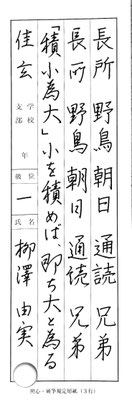 長所 野鳥朝日 通読 兄弟
長所 野鳥朝日 通読 兄弟
「積小為大」小を積めば、即ち大と為る
佳玄 学校 支部 年 級位 一 氏名 柳澤 由実
硬心・硬筆規定用紙（3行）